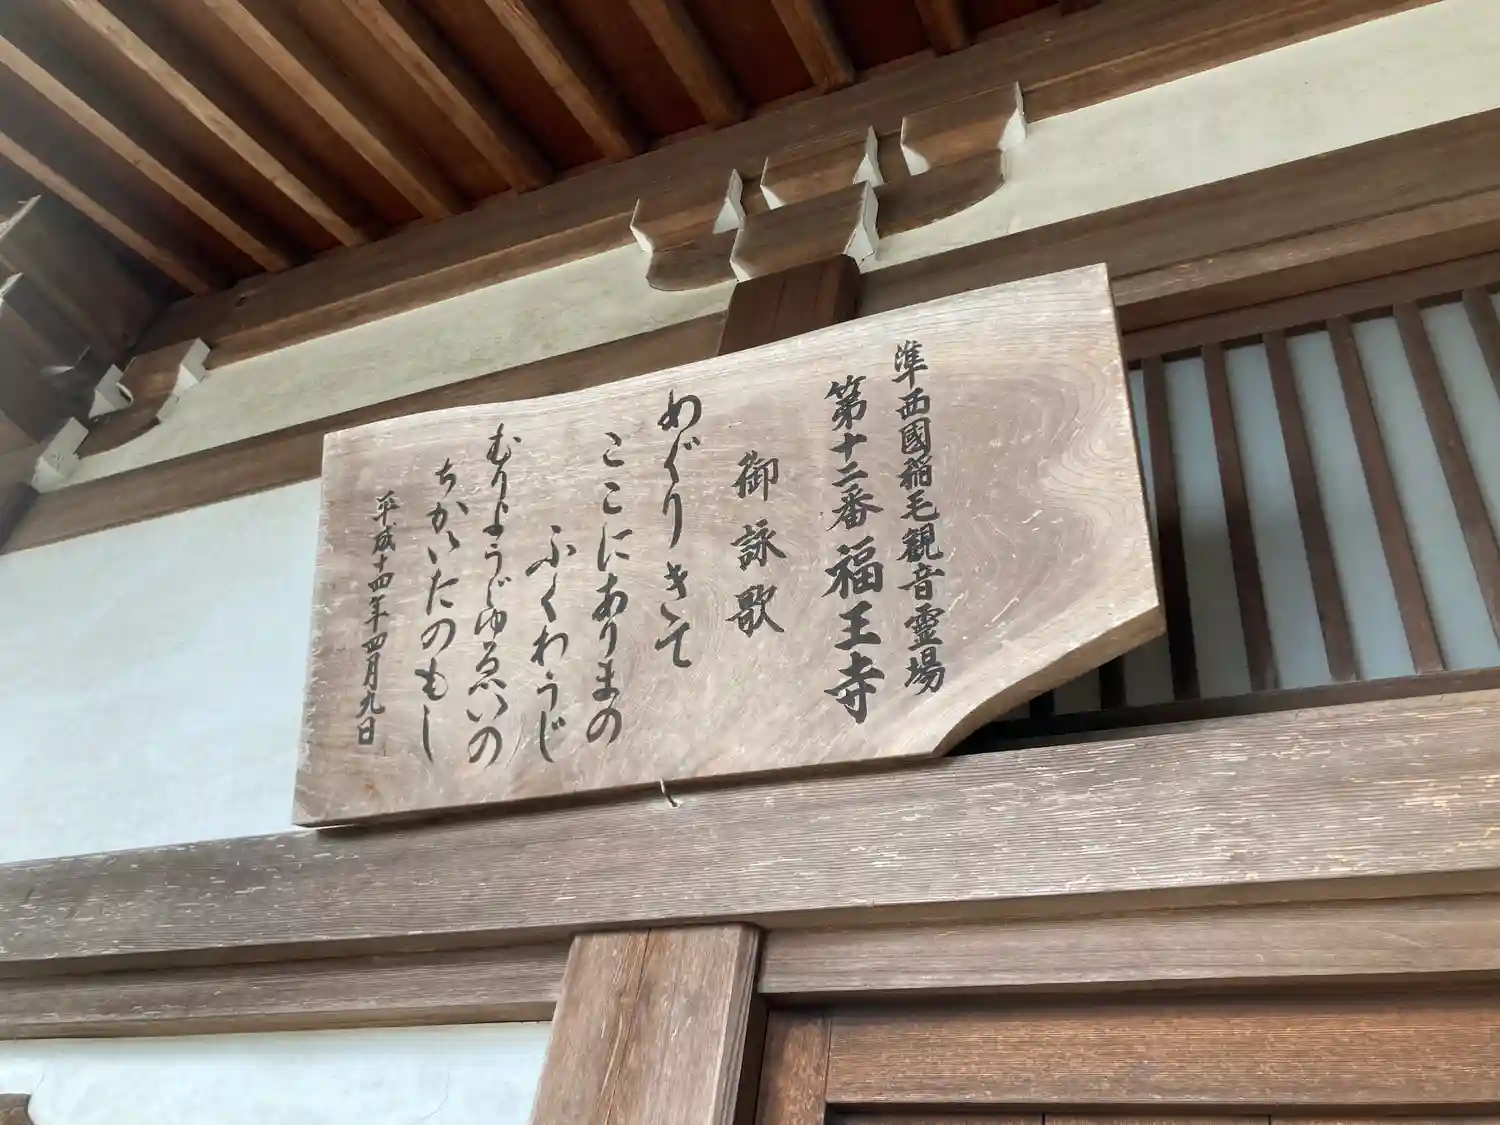 準西國稲毛観音霊場
第十二番 福王寺
御詠歌
めぐりきて
ここにありまの
ふくわうじ
むりようじゆゐいの
ちかいたのもし
平成十四年四月九日